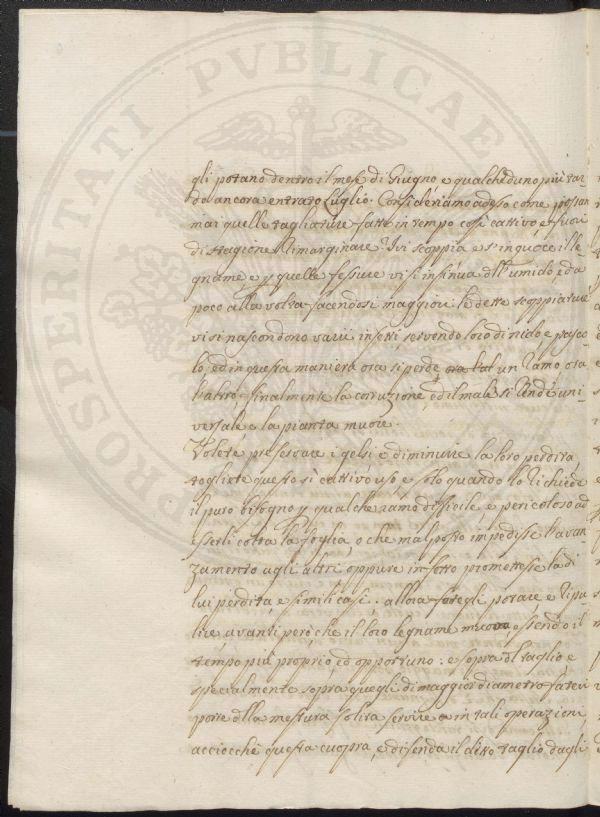 PROSPERITATI PVBLICAE
gli potano dentro il mese di Giugno e qualcheduno più tar=
di ancora entrato Luglio. Consideriamo adesso come possan
mai quelle tagliature fatte in tempo così cattivo e fuori
di stagione rimarginare? Ivi scoppia e s'inquoce il le=
gname, e p quelle fessure vi si insinua dll'umido, e da
poco alla volta facendosi maggiori le dette scoppiature
vi si nascondono varii insetti servendo loro di nido e pasco=
lo, ed in questa maniera ora si perde un ramo ora
l'altro, finalmente la corruzione, ed il male si rende uni=
versale e la pianta muore.
Volete preservare i gelsi e diminuire la loro perdita
togliete questo sì cattivo uso e solo quando lo richiede
il puro bisogno p qualche ramo difficile e pericoloso ad
esserli colta la foglia, o che mal posto impedisse l'avan
zamento agli altri oppure infetto promettesse la di
lui perdita, e simili casi: allora fategli potare e ripu=
lire avanti però che il loro legname muova essendo il
tempo più proprio, ed opportuno: e sopra dl taglio, e
specialmente sopra quegli di maggior diametro fatevi
porre dlla mestura solita servire in tali operazioni
acciocchè questa cuopra, e difenda il ditto taglio dagli